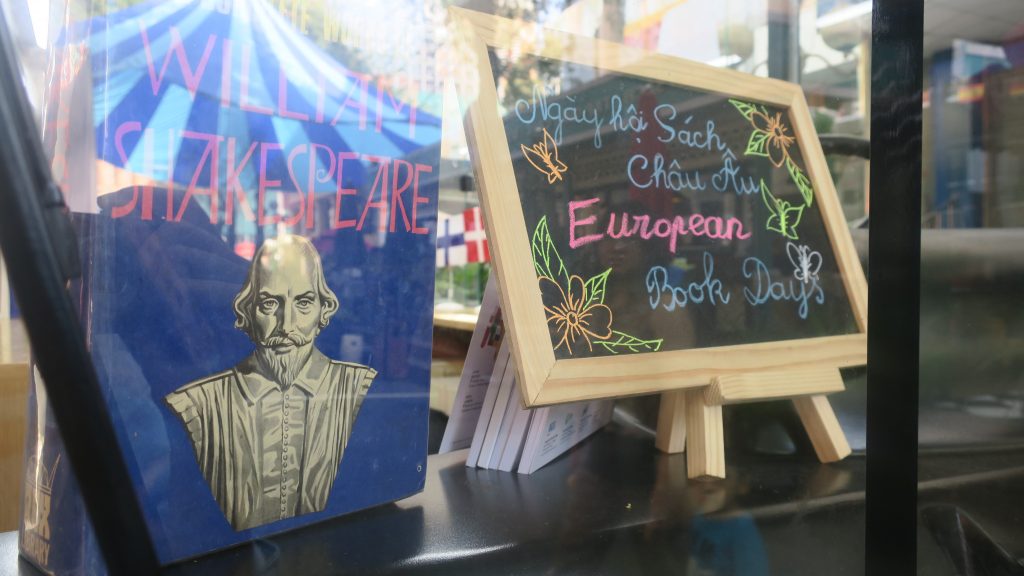 WILLIAM
SHAKESPEARE
Ngày hội Sách
Châu Âu
European
Book Days